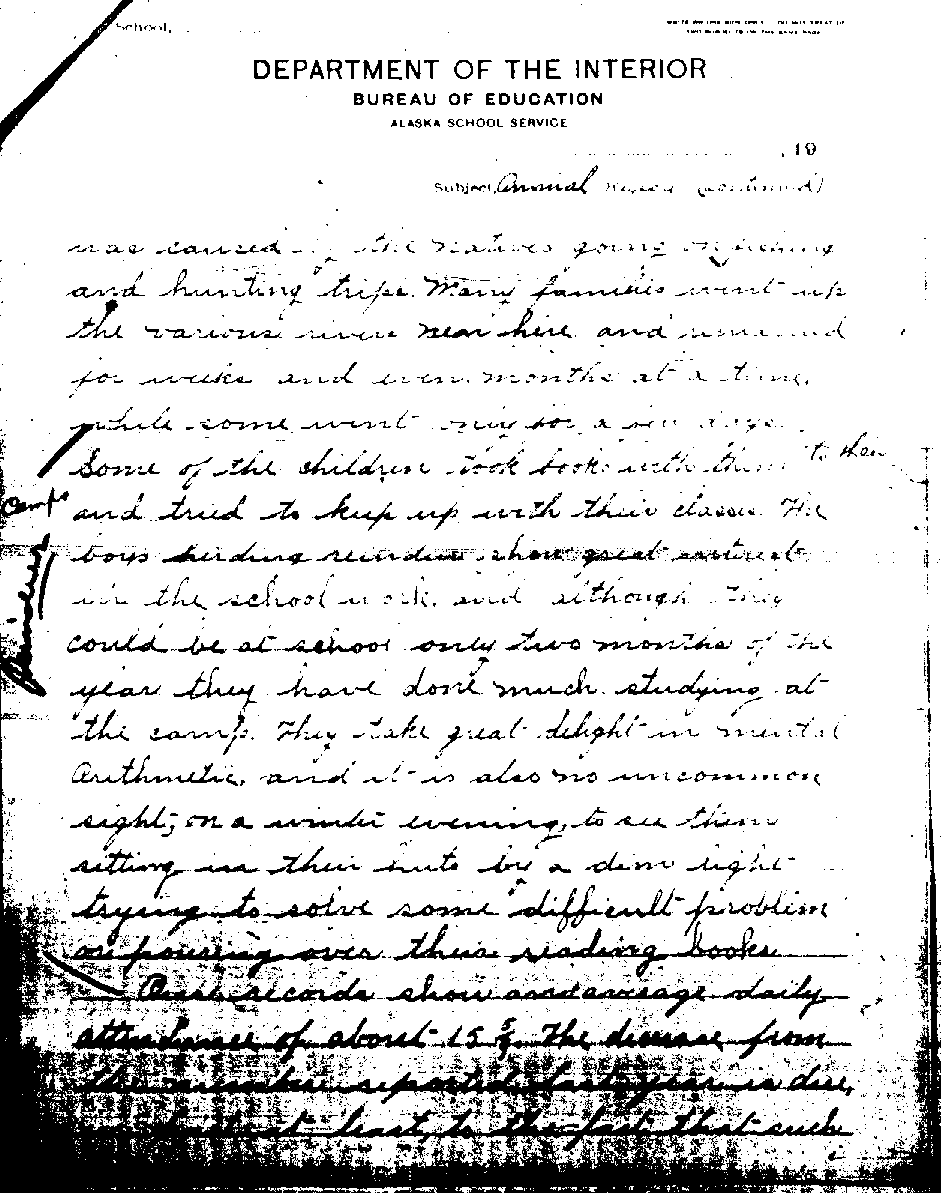 School,
DEPARTMENT OF THE INTERIOR
BUREAU OF EDUCATION
ALASKA SCHOOL SERVICE
, 19
Subject, Annual Report (continued)
was caused by the natives going on fishing
and hunting trips. Many families went up
the various rivers near here and remained
for weeks and even months at a time,
while some went only for a few days.
Some of the children took books with them to their
camps
and tried to keep up with their classes. The
boys herding reindeer show great interest
in the school work, and although they
could be at school only two months of the
year they have done much studying at
the camp. They take great delight in mental
Arithmetic, and it is also no uncommon
sight, on a winter evening, to see them
sitting in their huts by a dim light
trying to solve some difficult problem
or pouring over their reading books.
Our records show an average daily
attendance of about 15
The decrease from
the number reported last year is due,
at least, to the fact that such